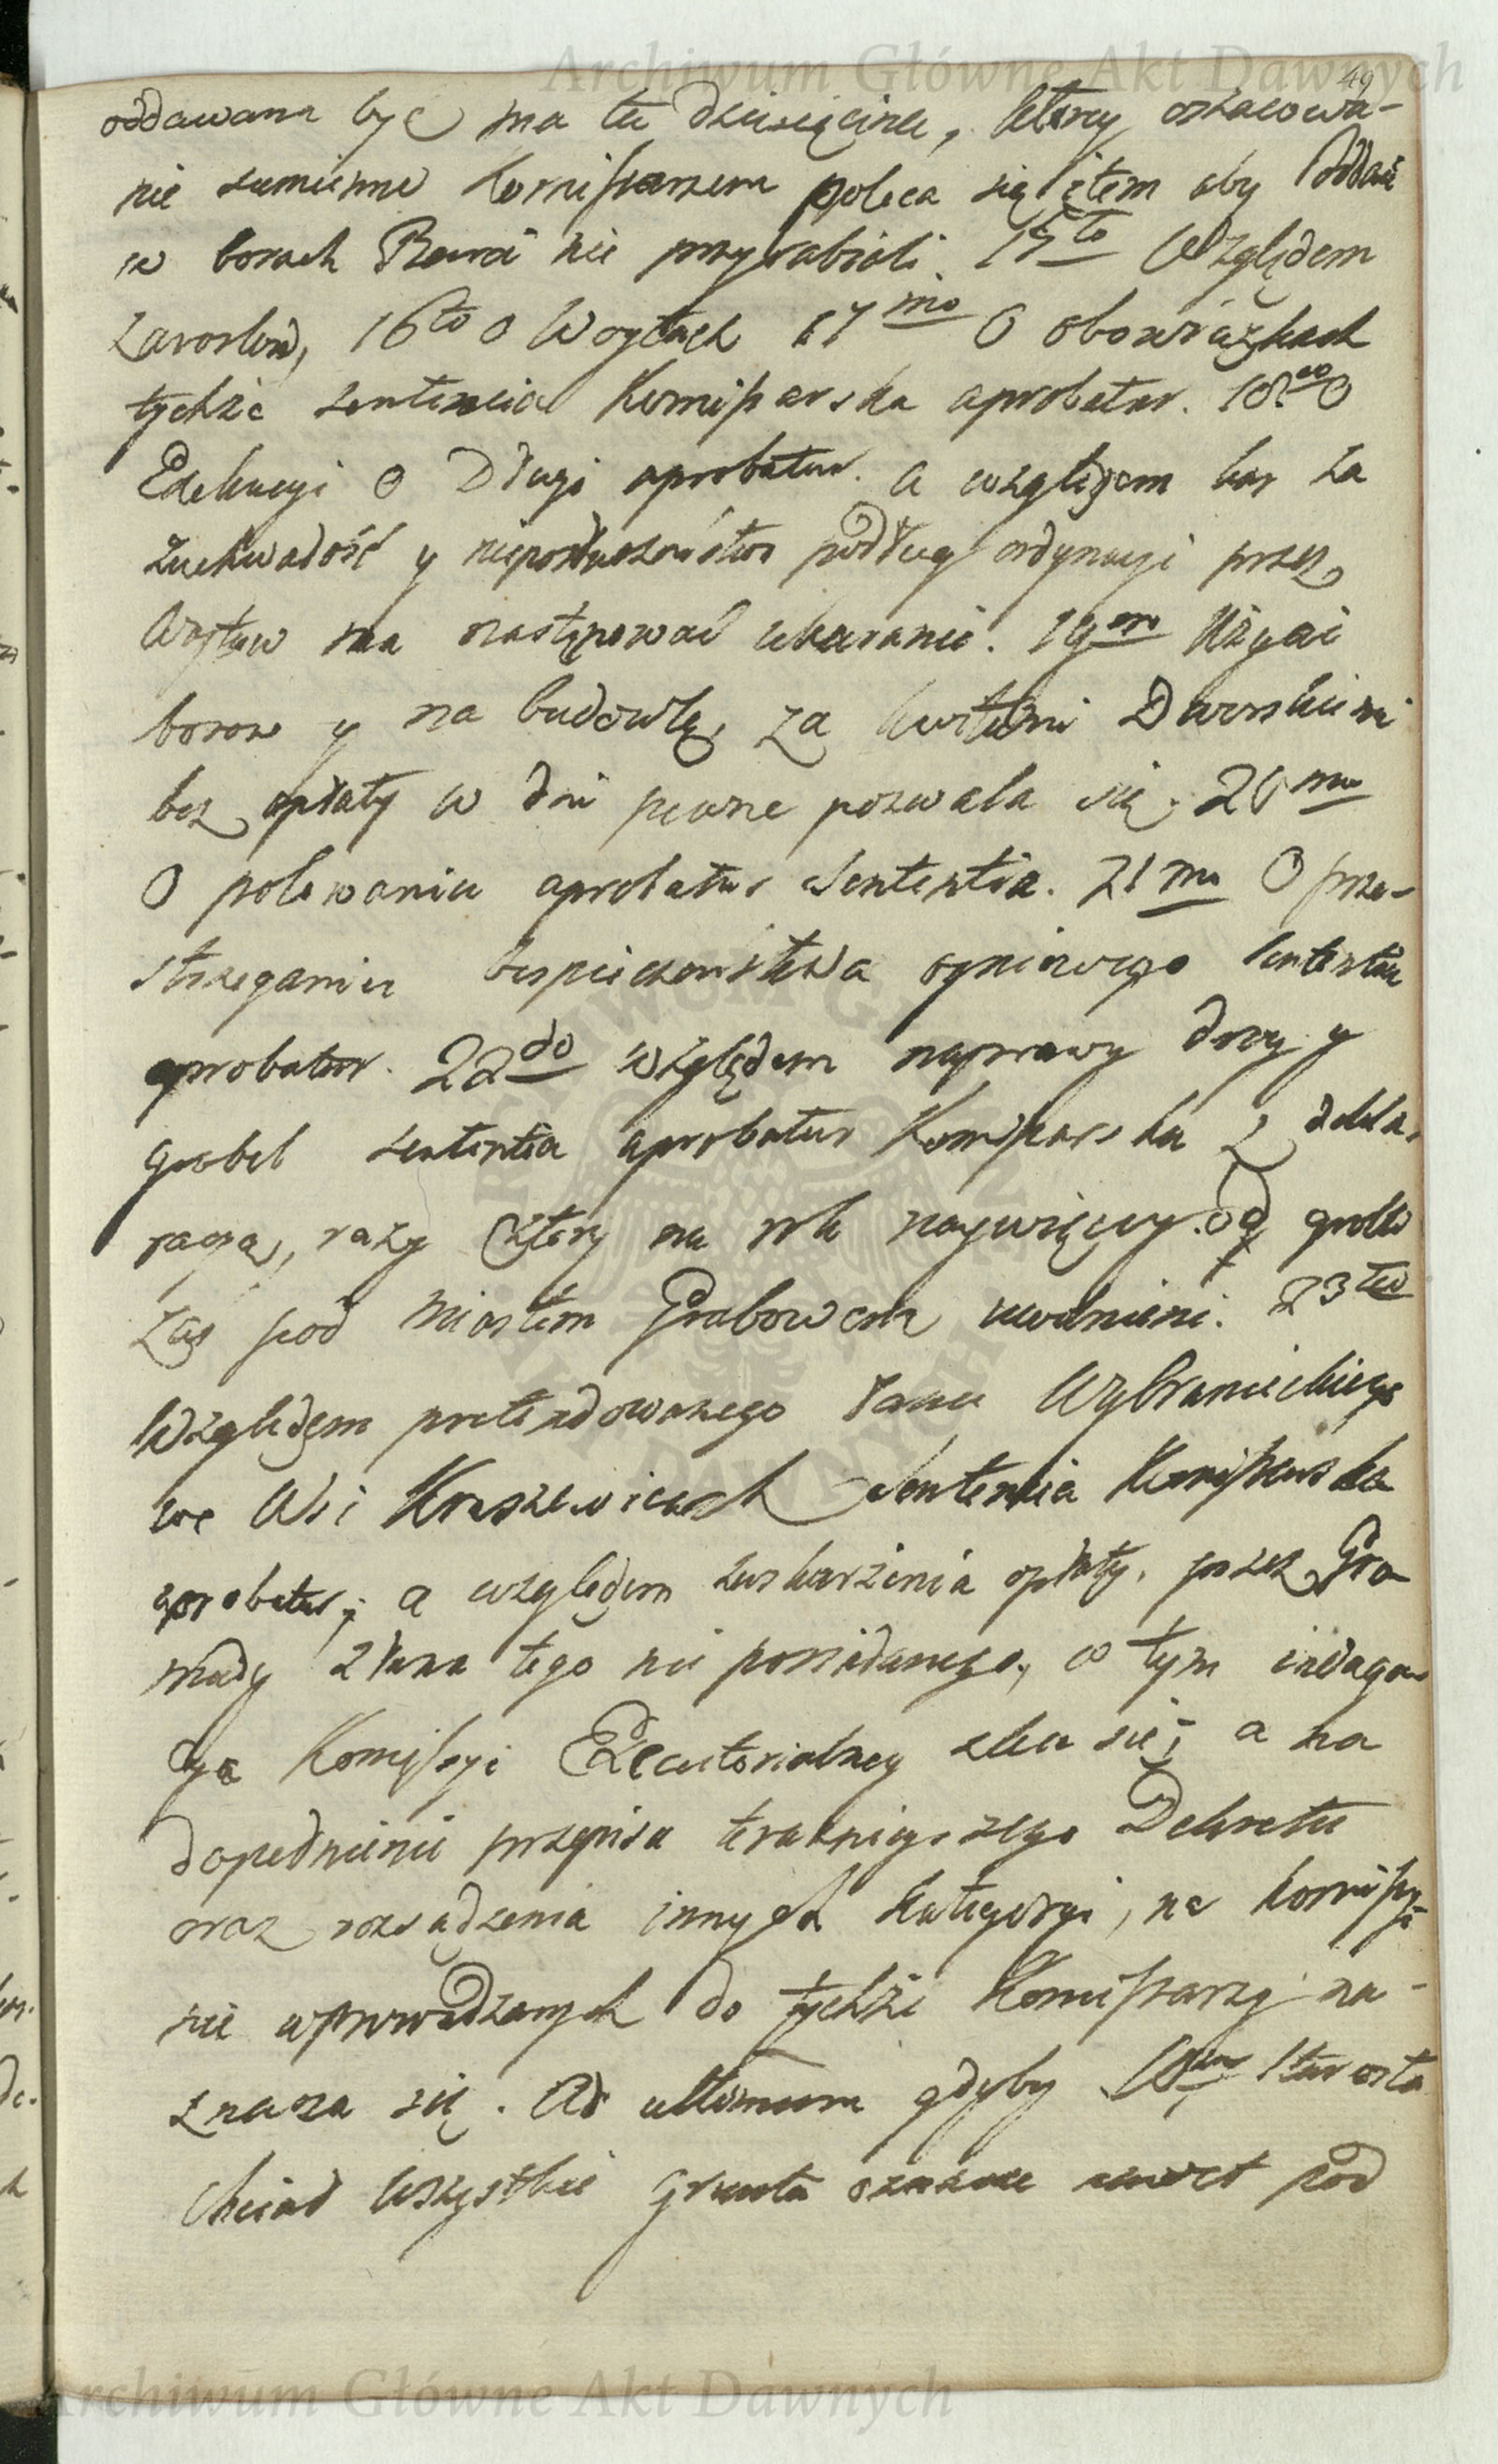 Archiwum Główne Akt Dawnych
49
oddawana być ma ta dziesięcina, ktorey oszacowa-
nie sumienne Komissarzom poleca się item aby Poddani
w borach Barci nie przyrabiali. 15to Względem
zarostow, 16to o Woytach 17mo O obowiązkach
tychże sentencia Komissarska aprobatur. 18vo O
Exekucyi o Długi aprobatur. a względem kar za
zuchwałość y nieposłuszeństwo podług ordynacyi przez
Woytow ma następować ukaranie. 19no Użycie
borow y na budowlę, za kwitami Dworskiemi
bez opłaty w dni pewne pozwala się. 20mo
O polowaniu aprobatur Sententia. 21mo O prze-
strzeganiu bespieczeństwa ogniowego sententia
aprobatur. 22do względem naprawy drog y
grobel sententia aprobatur Komissarska z dekla-
racyą, razy cztery na rok naywięcey. od grobli
zaś pod Miastem Grabowem uwolnieni. 23tio
Względem pretendowanego Łanu Wybranieckiego
we Wsi Kraszewicach Sentencia Komissarska
aprobatur; a względem zaskarżenia opłaty, przez Gro
mady z łanu tego nie posiadanego, o tym indaga
cya Komissyi Exekutorialney zleca się; a na
dopełnienie przepisu teraznieyszego Dekretu
oraz rozsądzenia innych kategoryi, na Komissyi
nie wprowadzanych do tychże Komissarzy na-
znacza się. Ad ultimum gdyby Starosta
chciał wszystkie grunta nawet pod
Archiwum Główne Akt Dawnych